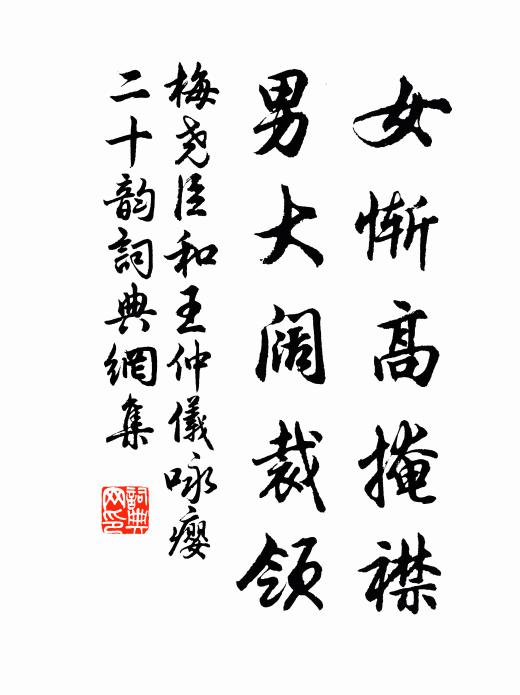 女惭高掩襟
男大阔裁领
梅尧臣和王仲儀咏瘿
二十韵詞典網集
詞典网印